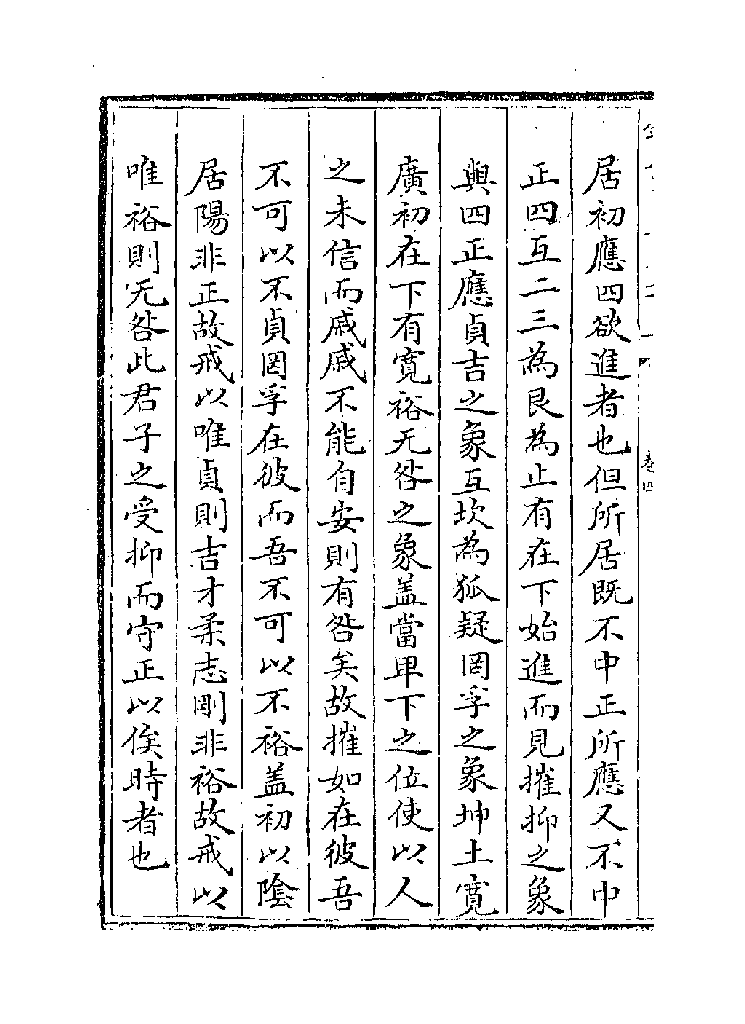 居初應四欲進者也但所居既不中正所應又不中
正四互二三為艮為止有在下始進而見摧抑之象
與四正應貞吉之象互坎為狐疑罔孚之象坤土寛
廣初在下有寛裕无咎之象盖當卑下之位使以人
之未信而戚戚不能自安則有咎矣故摧如在彼吾
不可以不貞罔孚在彼而吾不可以不裕盖初以陰
居陽非正故戒以唯貞則吉才柔志剛非裕故戒以
唯裕則无咎此君子之受抑而守正以俟時者也
卷四